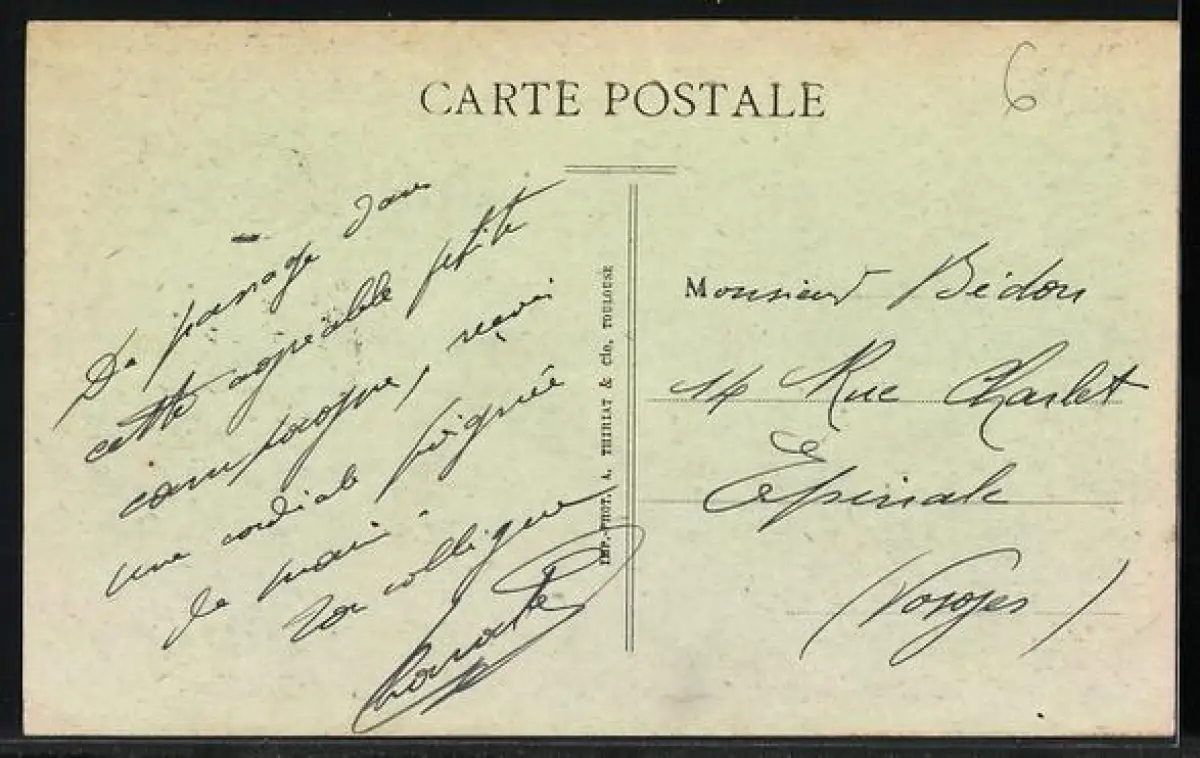 CARTE POSTALE
6
De passage dans
cette agréable petite
campagne, reçois
une cordiale poignée
de main.
Ton collègue
IMP.-PHOT. A. THIRIAT & Cie, TOULOUSE
Monsieur Bédon
14 Rue Charlet
Epinale
(Vosges)